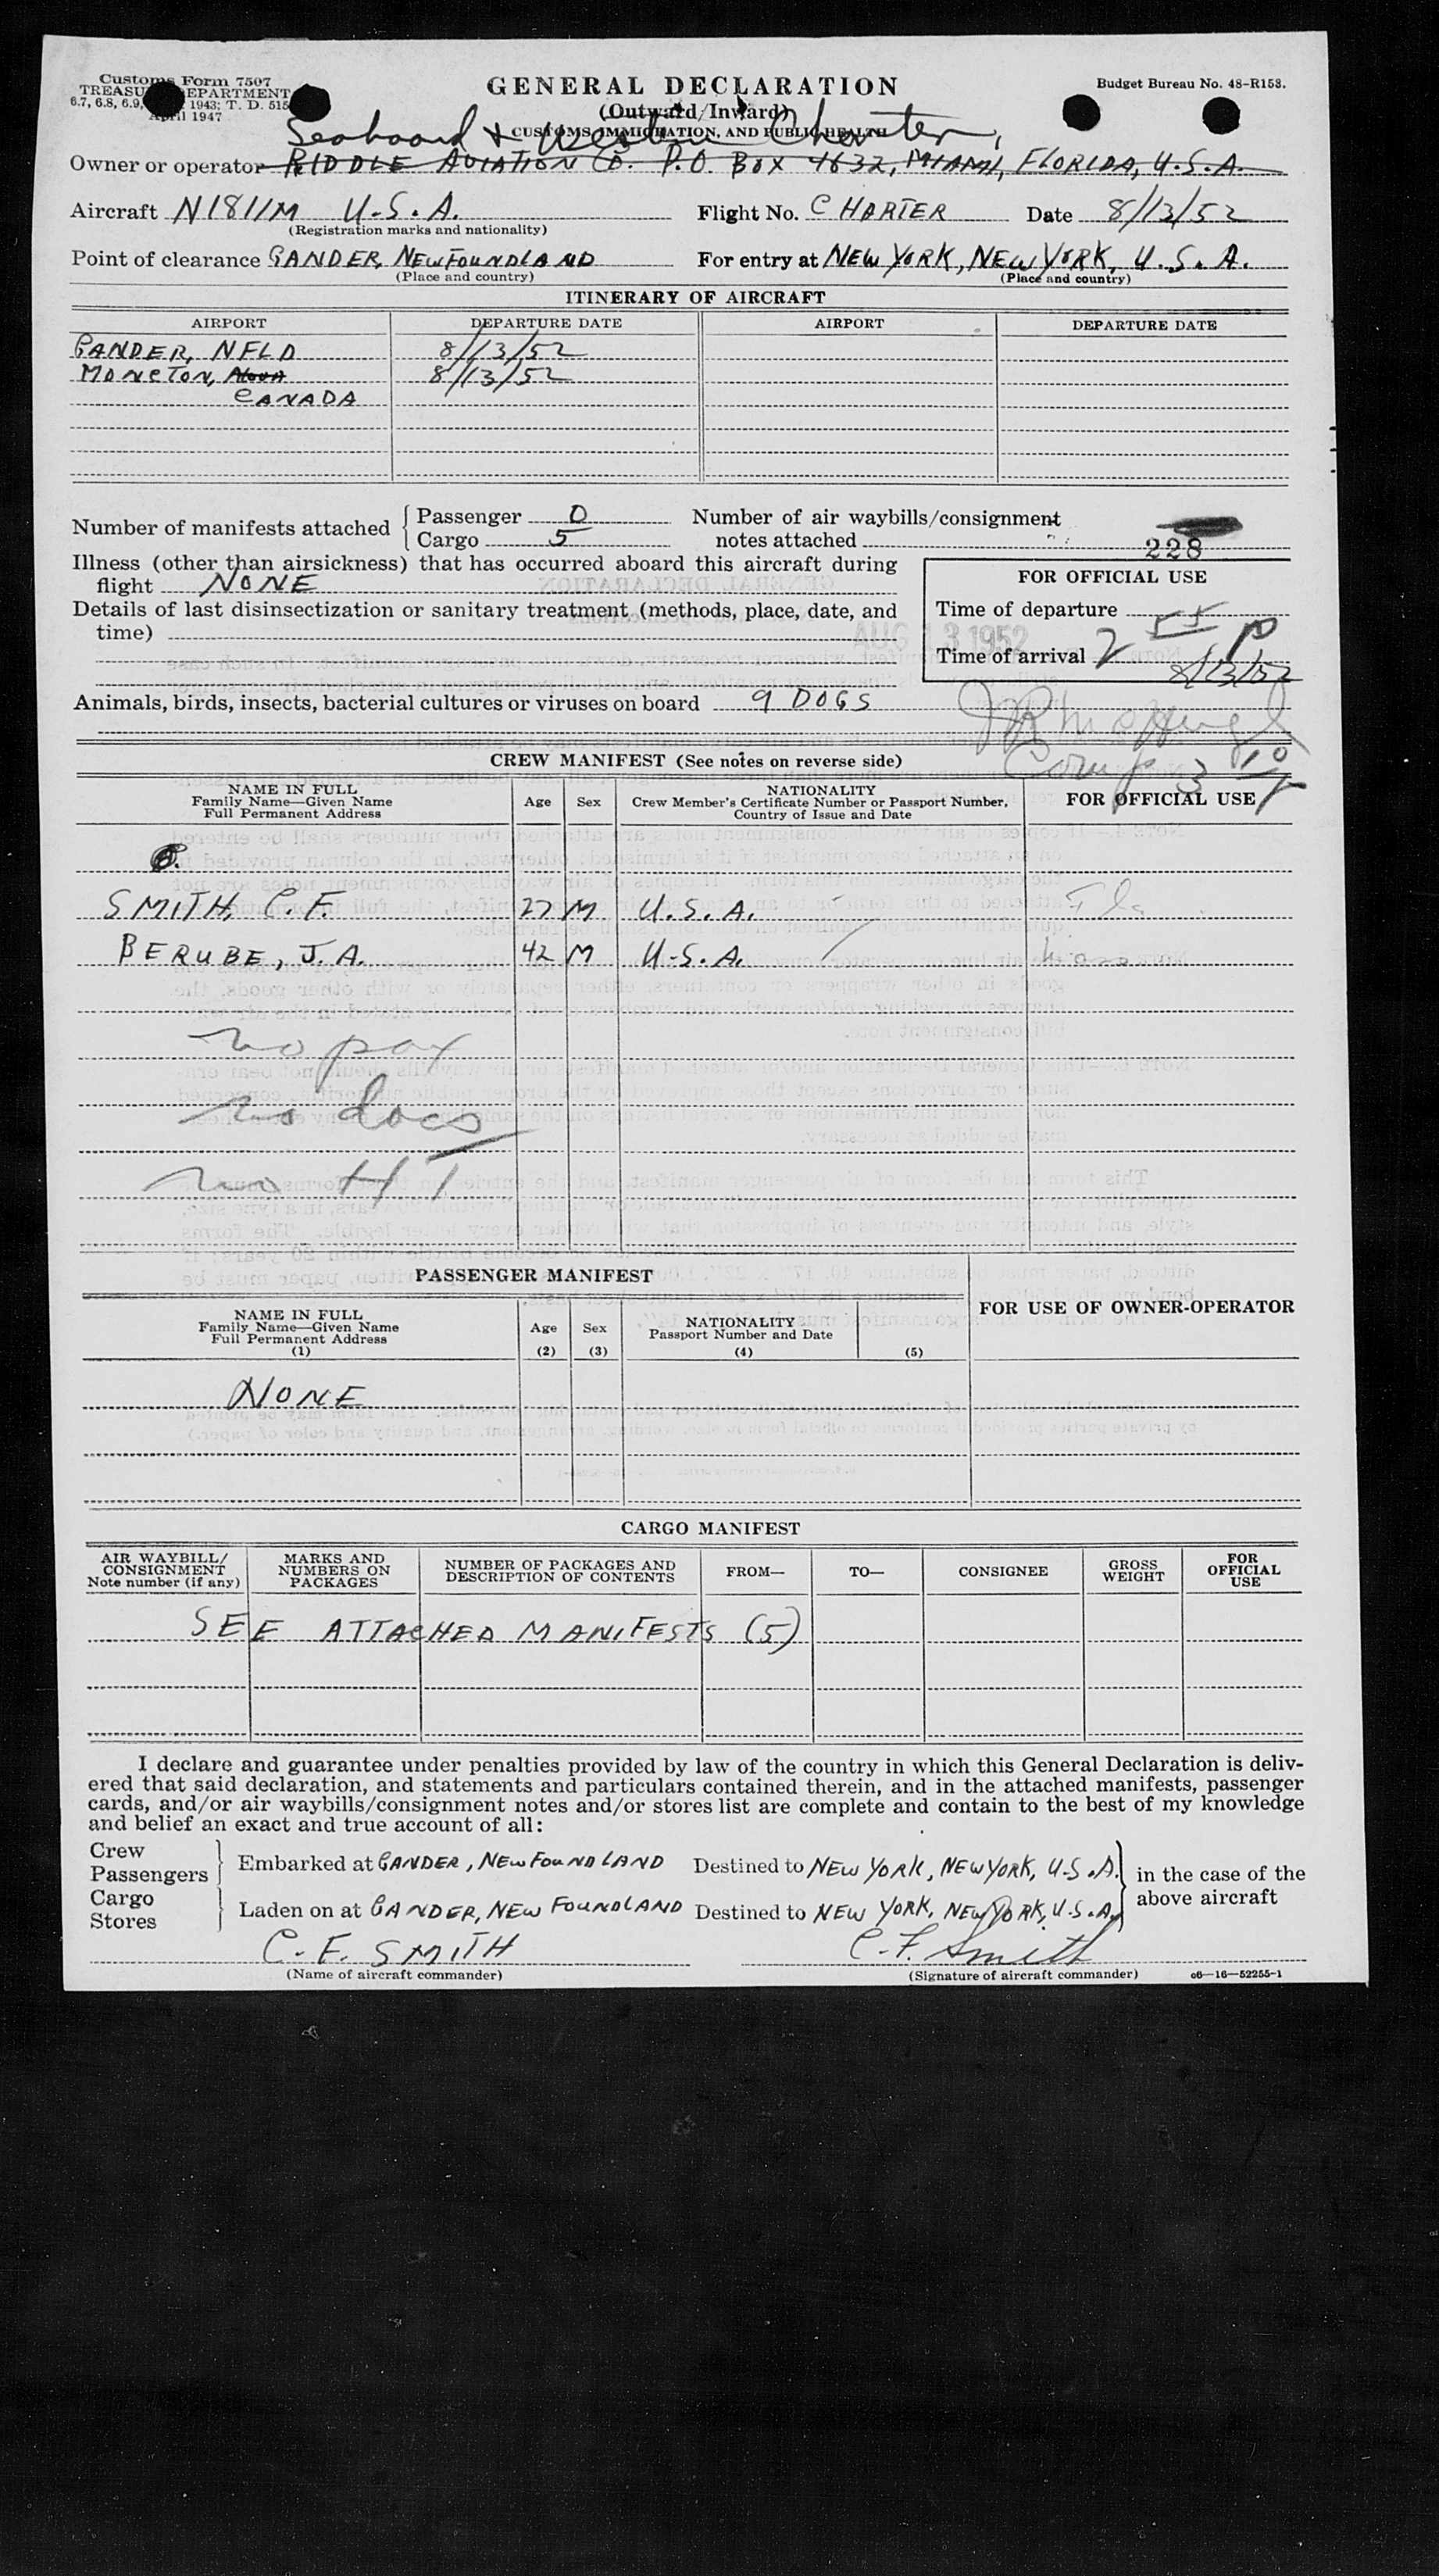 Customs Form 7507
TREASU DEPARTMENT
6.7, 6.8, 6.9, 1943; T. D. 515
April 1947
GENERAL DECLARATION
(Outward/Inward)
CUSTOMS, IMMIGRATION, AND PUBLIC HEALTH
Budget Bureau No. 48-R153.
Seaboard & Western Charter,
Owner or operator RIDDLE AVIATION CO. P.O. BOX 4632, MIAMI, FLORIDA, U.S.A.
Aircraft N1811M U.S.A. Flight No. CHARTER Date 8/13/52
(Registration marks and nationality)
Point of clearance GANDER, NEWFOUNDLAND For entry at NEW YORK, NEW YORK, U.S.A.
(Place and country) (Place and country)
ITINERARY OF AIRCRAFT
AIRPORT DEPARTURE DATE AIRPORT DEPARTURE DATE
GANDER, NFLD 8/13/52
MONCTON, 8/13/52
CANADA
Number of manifests attached { Passenger 0
Cargo 5
Number of air waybills/consignment
notes attached
228
Illness (other than airsickness) that has occurred aboard this aircraft during
flight NONE
Details of last disinsectization or sanitary treatment (methods, place, date, and
time)
AUG 13 1952
FOR OFFICIAL USE
Time of departure
Time of arrival 2 55 P
8/13/52
Animals, birds, insects, bacterial cultures or viruses on board 9 DOGS
Comp 3 10 P
CREW MANIFEST (See notes on reverse side)
NAME IN FULL
Family Name—Given Name
Full Permanent Address
Age Sex
NATIONALITY
Crew Member's Certificate Number or Passport Number,
Country of Issue and Date
FOR OFFICIAL USE
SMITH, C.F. 27 M U.S.A. Fla
BERUBE, J.A. 42 M U.S.A.
no pax
no docs
no HT
PASSENGER MANIFEST
FOR USE OF OWNER-OPERATOR
NAME IN FULL
Family Name—Given Name
Full Permanent Address
(1)
Age
(2)
Sex
(3)
NATIONALITY
Passport Number and Date
(4) (5)
NONE
CARGO MANIFEST
AIR WAYBILL/
CONSIGNMENT
Note number (if any)
MARKS AND
NUMBERS ON
PACKAGES
NUMBER OF PACKAGES AND
DESCRIPTION OF CONTENTS
FROM— TO— CONSIGNEE
GROSS
WEIGHT
FOR
OFFICIAL
USE
SEE ATTACHED MANIFESTS (5)
I declare and guarantee under penalties provided by law of the country in which this General Declaration is deliv-
ered that said declaration, and statements and particulars contained therein, and in the attached manifests, passenger
cards, and/or air waybills/consignment notes and/or stores list are complete and contain to the best of my knowledge
and belief an exact and true account of all:
Crew
Passengers } Embarked at GANDER, NEWFOUNDLAND Destined to NEW YORK, NEW YORK, U.S.A.
Cargo
Stores } Laden on at GANDER, NEWFOUNDLAND Destined to NEW YORK, NEW YORK, U.S.A.
} in the case of the
above aircraft
C. F. SMITH C.F. Smith
(Name of aircraft commander) (Signature of aircraft commander) c6—16—52255-1